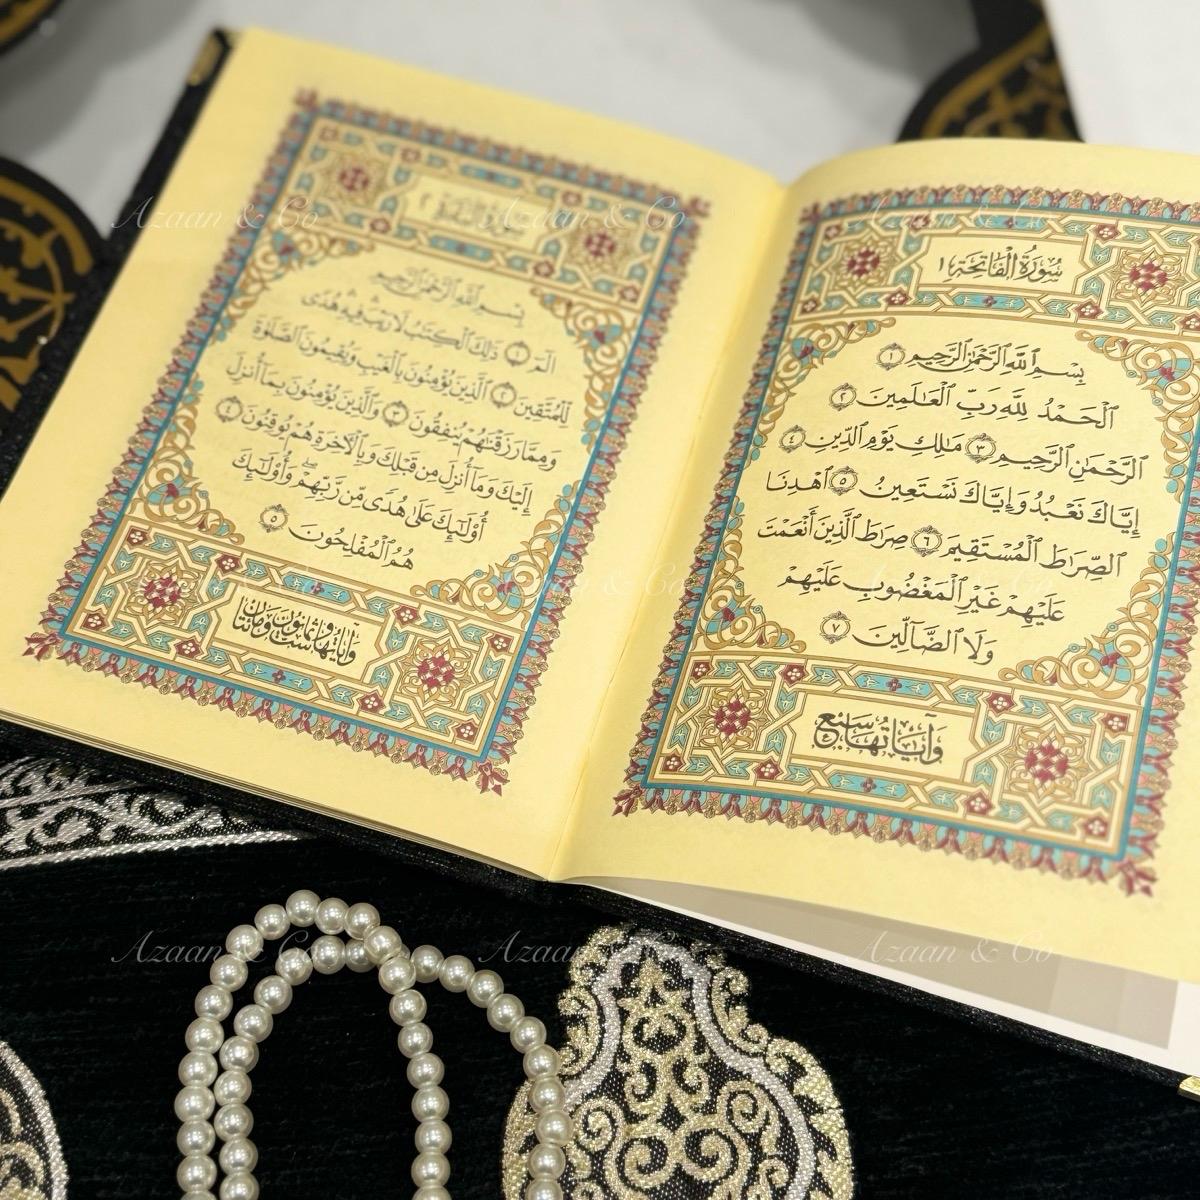 سُورَةُ ٱلْفَاتِحَةِ ١
بِسْمِ ٱللَّهِ ٱلرَّحْمَٰنِ ٱلرَّحِيمِ ١
ٱلْحَمْدُ لِلَّهِ رَبِّ ٱلْعَٰلَمِينَ ٢
ٱلرَّحْمَٰنِ ٱلرَّحِيمِ ٣ مَٰلِكِ يَوْمِ ٱلدِّينِ ٤
إِيَّاكَ نَعْبُدُ وَإِيَّاكَ نَسْتَعِينُ ٥ ٱهْدِنَا
ٱلصِّرَٰطَ ٱلْمُسْتَقِيمَ ٦ صِرَٰطَ ٱلَّذِينَ أَنْعَمْتَ
عَلَيْهِمْ غَيْرِ ٱلْمَغْضُوبِ عَلَيْهِمْ
وَلَا ٱلضَّآلِّينَ ٧
وَآيَاتُهَا سَبْعٌ
بِسْمِ ٱللَّهِ ٱلرَّحْمَٰنِ ٱلرَّحِيمِ
الٓمٓ ١ ذَٰلِكَ ٱلْكِتَٰبُ لَا رَيْبَ فِيهِ هُدًى
لِّلْمُتَّقِينَ ٢ ٱلَّذِينَ يُؤْمِنُونَ بِٱلْغَيْبِ وَيُقِيمُونَ ٱلصَّلَوٰةَ
وَمِمَّا رَزَقْنَٰهُمْ يُنفِقُونَ ٣ وَٱلَّذِينَ يُؤْمِنُونَ بِمَآ أُنزِلَ
إِلَيْكَ وَمَآ أُنزِلَ مِن قَبْلِكَ وَبِٱلْءَاخِرَةِ هُمْ يُوقِنُونَ ٤
أُو۟لَٰٓئِكَ عَلَىٰ هُدًى مِّن رَّبِّهِمْ ۖ وَأُو۟لَٰٓئِكَ
هُمُ ٱلْمُفْلِحُونَ ٥
وَآيَاتُهَا سِتٌّ وَثَمَانُونَ وَمِائَتَانِ
Azaan & Co
Azaan & Co
Azaan & Co
Azaan & Co
Azaan & Co